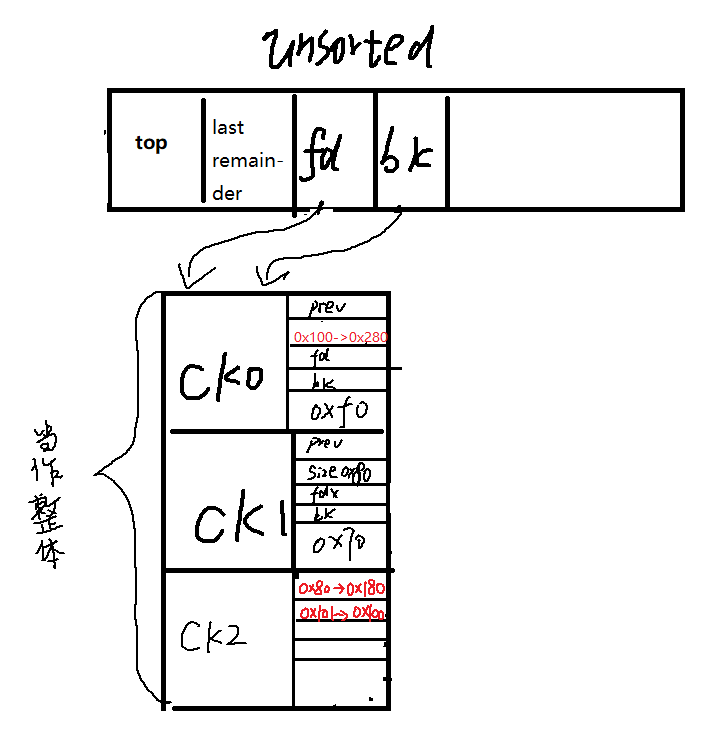 unsorted
top
last
remain-
der
fd
bk
ck0
prev
0x100->0x280
fd
bk
0xf0
当作整体
ck1
prev
size 0x80
fdx
bk
0x70
ck2
0x80→0x180
0x101→0x100